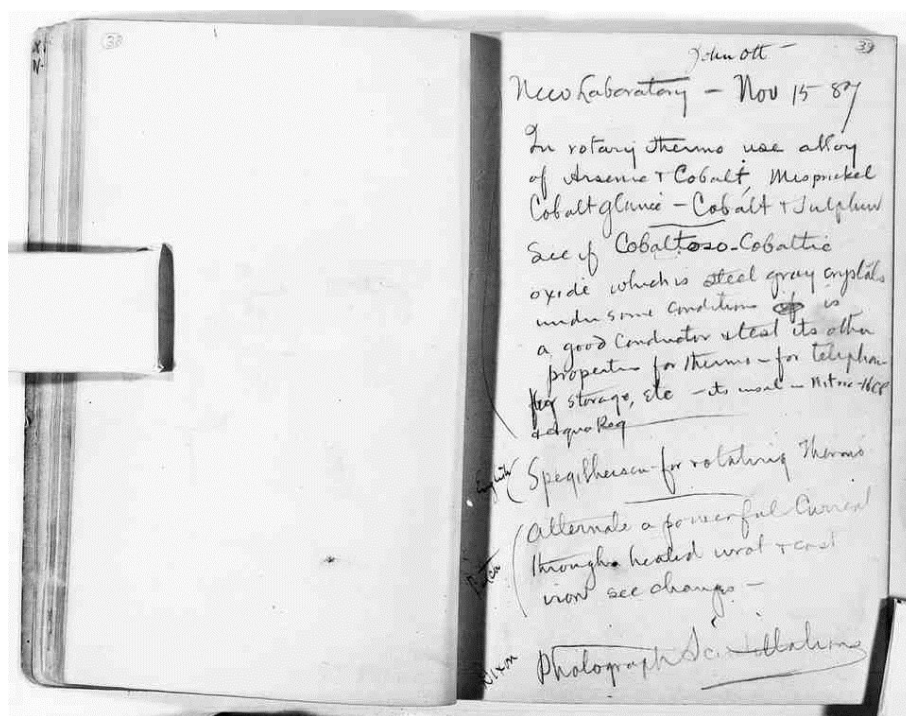 38
39
John Ott —
New Laboratory — Nov 15 87
In rotary thermo use alloy
of Arsenic & Cobalt, Mispickel
Cobalt glance — Cobalt & Sulphur
See if Cobaltoso-Cobaltic
oxide which is steel gray crystals
under some conditions is
a good conductor & test its other
properties for thermo — for telephone
storage, etc — its insol in Nitric – HCl
& Aqua Reg
English
Spegileisen for rotating Thermo
Alternate a powerful Current
through heated wrot & cast
iron see changes —
Dixon
Photograph Scintillations